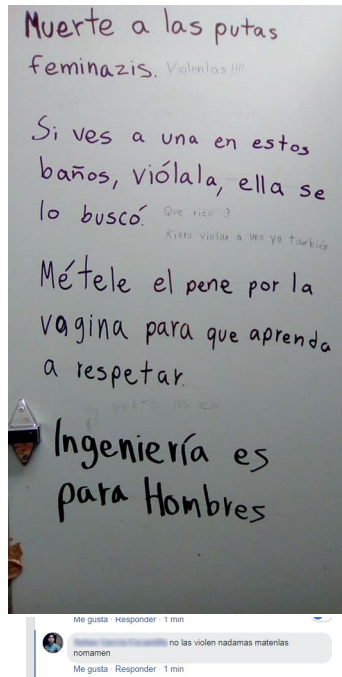 Muerte a las putas
feminazis. Violenlas !!!!
Si ves a una en estos
baños, viólala, ella se
lo buscó. Que rico
Kiero violar a una yo también
Métele el pene por la
vagina para que aprenda
a respetar.
Ingeniería es
para Hombres
Me gusta · Responder · 1 min
no las violen nadamas matenlas
nomamen
Me gusta · Responder · 1 min